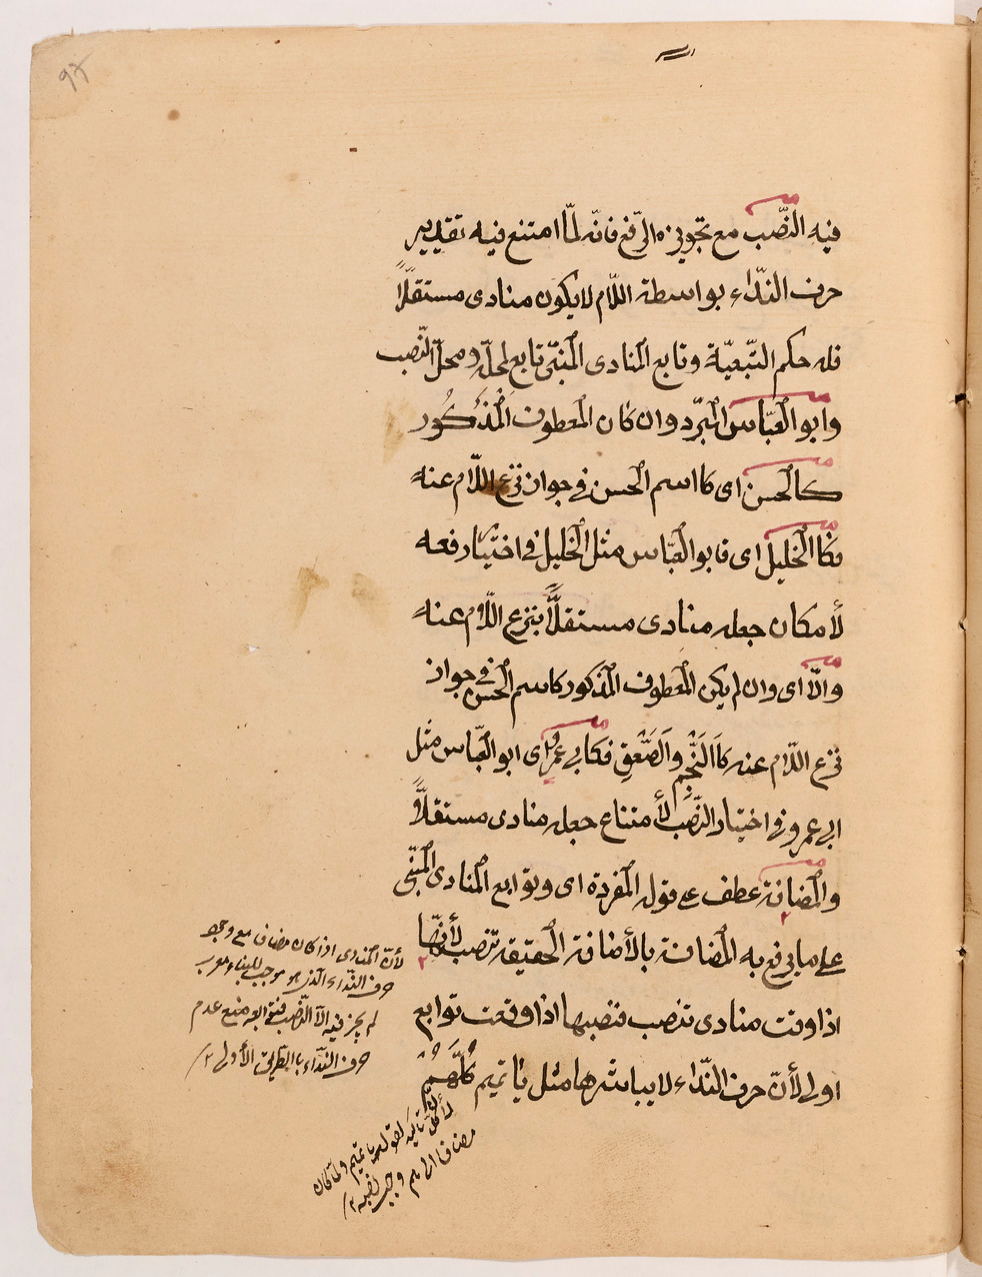 فيه النّصب مع تجويزه الرّفع فانّه لمّا امتنع فيه تقدير
حرف النّداء بواسطة اللّام لا يكون منادى مستقلّاً
فله حكم التّبعيّة وتابع المنادى المبنى تابع لمحلّه ومحلّ النّصب
وابو العبّاس المبرّد وان كان المعطوف المذكور
كالحسن اى كاسم الحسن فى جواز نزع اللّام عنه
فكالخليل اى فابو العبّاس مثل الخليل فى اختيار رفعه
لأمكان جعله منادى مستقلّاً بنزع اللّام عنه
والّا اى وان لم يكن المعطوف المذكور كاسم الحسن فى جواز
نزع اللّام عنه كالنّجم والصّعق فكابى عمرو اى ابو العبّاس مثل
ابى عمرو فى اختيار النّصب لأمتناع جعله منادى مستقلّاً
والمضافة عطف على قوله المفردة اى وتوابع المنادى المبنى
على ما يرفع به المضافة بالأضافة الحقيقة تنصب لأنّها
اذا وقعت منادى تنصب فنصبها اذا وقعت توابع
اولى لأنّ حرف النّداء لا يباشرها مثل يا تميم كلّهم
لأنّ المنادى اذا كان مضاف مع وجود
حرف النّداء الذى هو موجب للبناء معرب
لم يجز فيه الّا النّصب فتوابعه مع عدم
حرف النّداء بالطريق الأولى ١٢
تأكيد لقوله يا تميم ولمّا كان
مضاف الى هم وجب نصبه ١٢